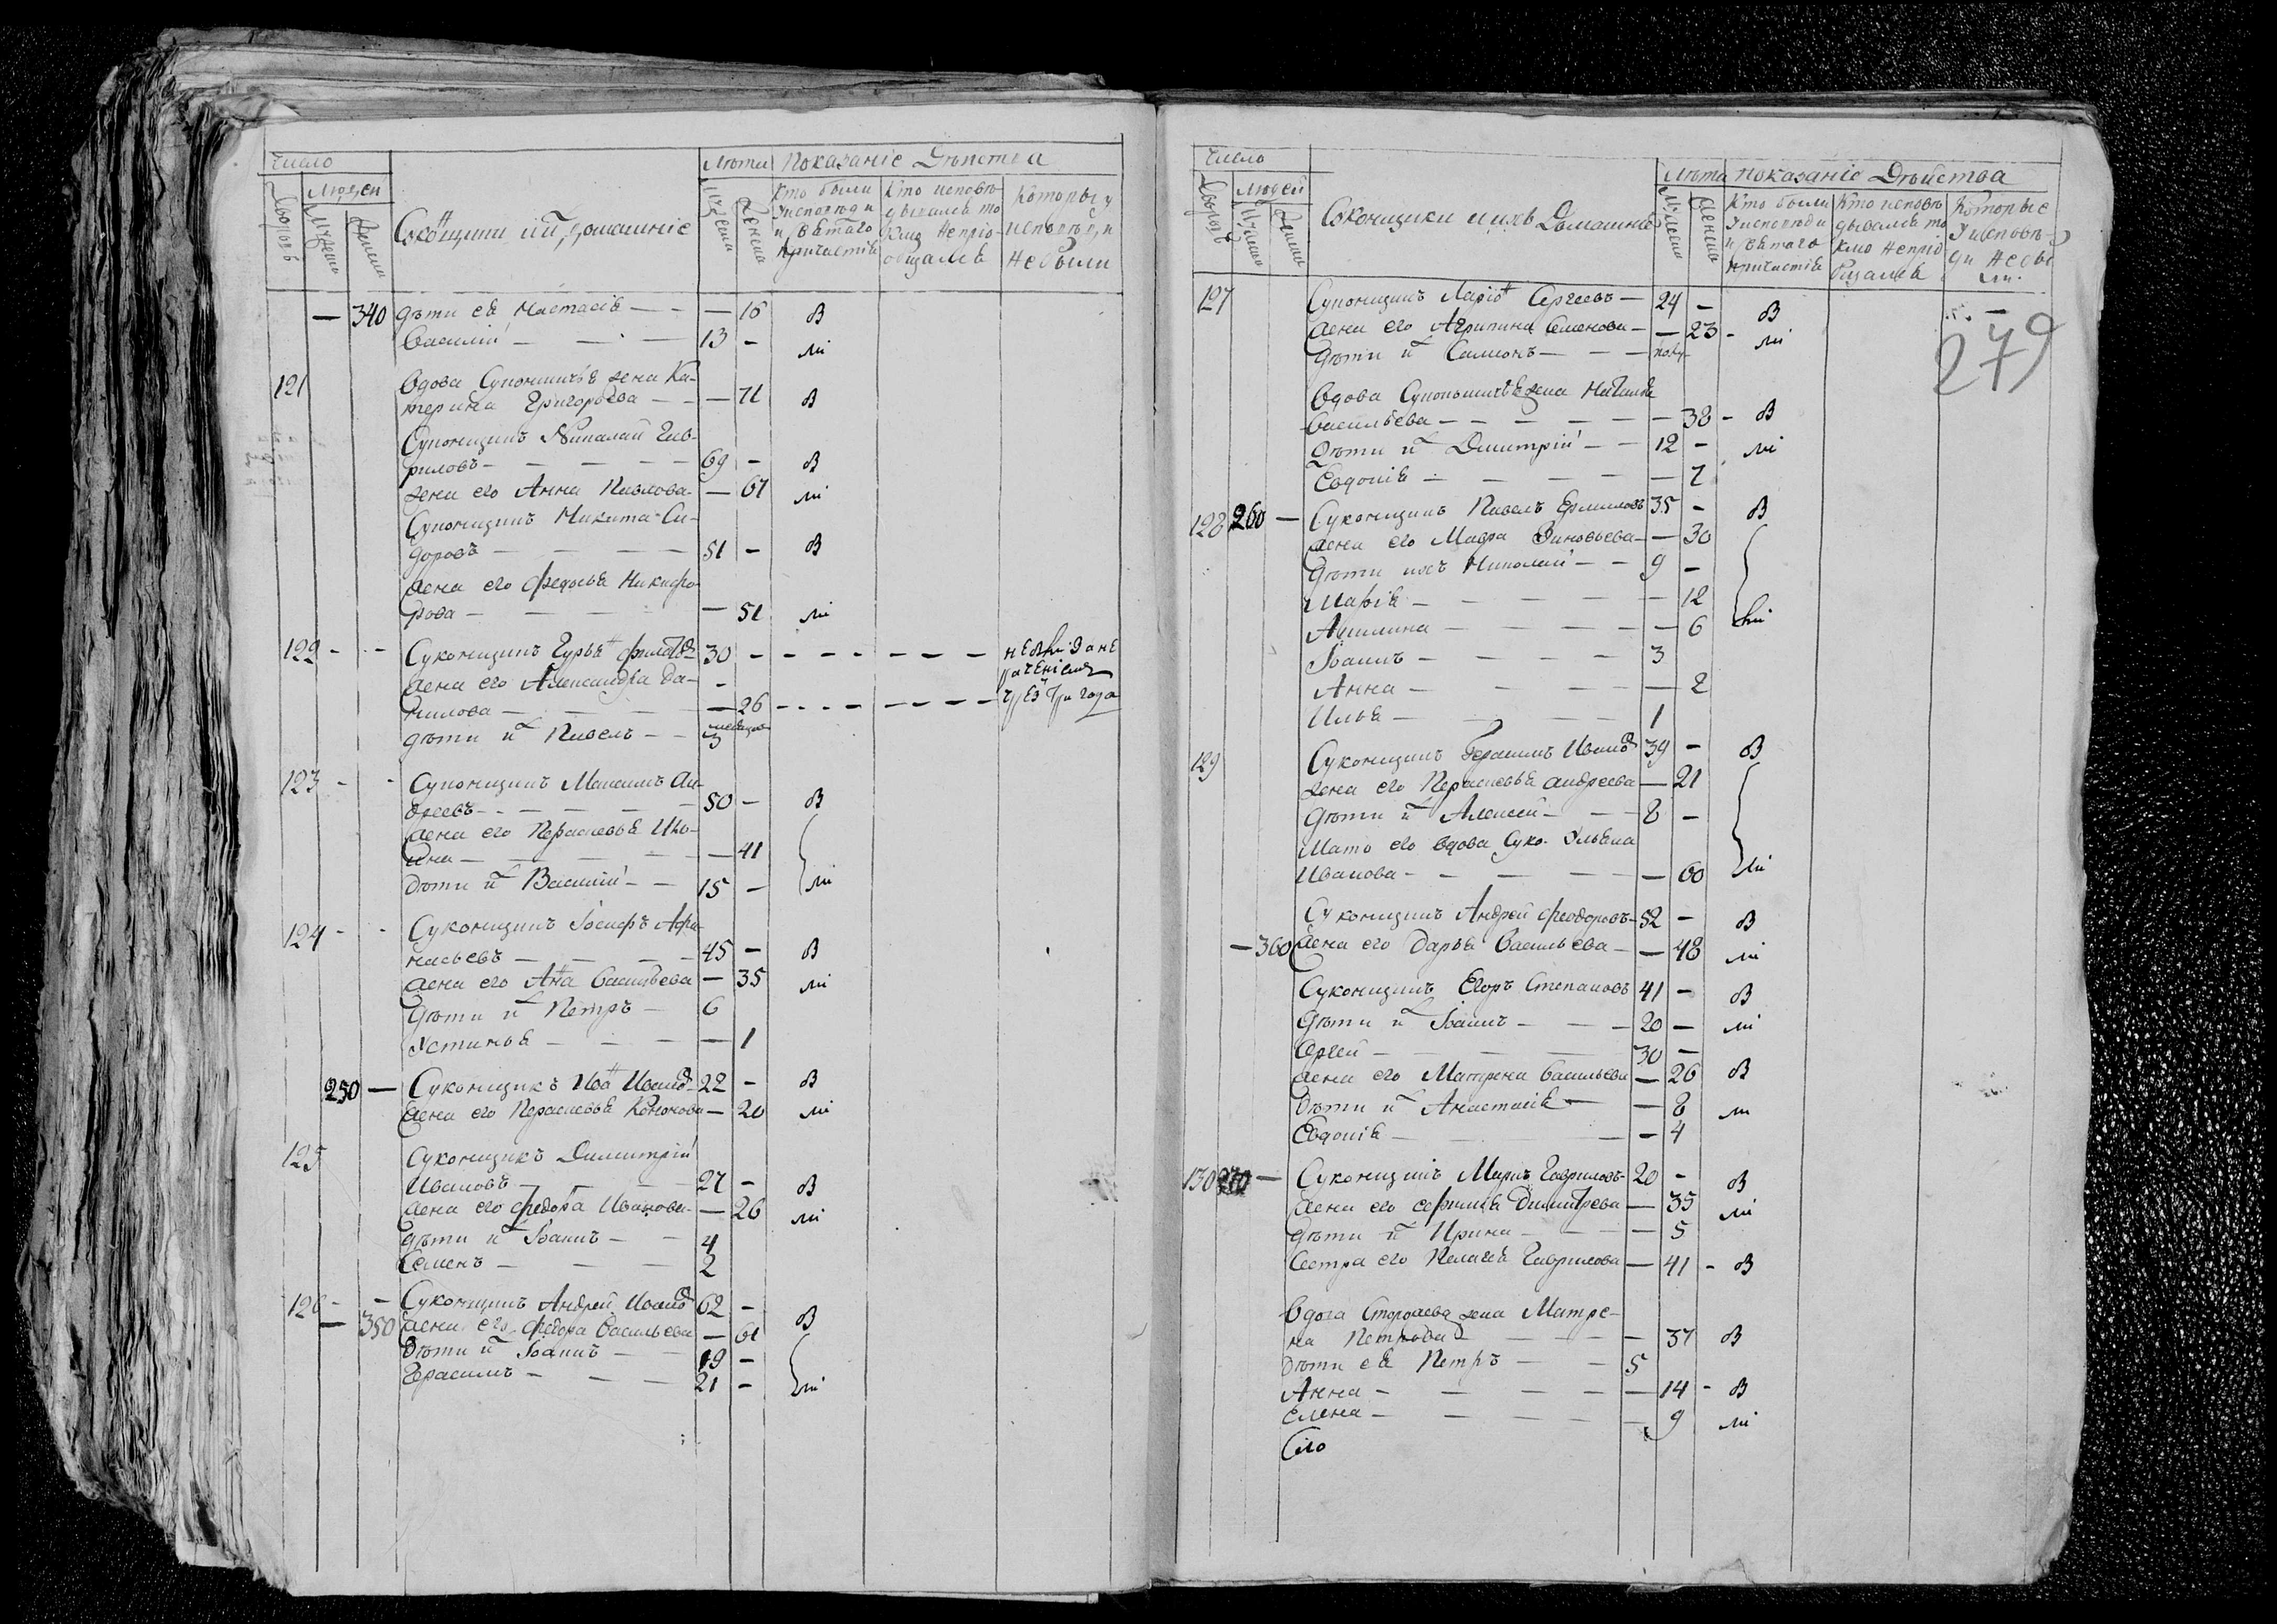 Число
Людей
Дворовъ
Мужеска
Женска
Лѣта
Показаніе Дѣйства
Кто были
у исповѣди
и святаго
причастія
Кто исповѣ-
дывался то
кмо непріо-
бщался
Которые у
исповѣди
не были
— 340 дѣти ея Настасія — — — 16 в
Василій — — — 13 — ли
121 Вдова Суконщичья жена Ка-
терина Григорьева — — — 71 в
Суконщикъ Николай Гав-
риловъ — — — — 69 — в
жена его Анна Павлова — — 67 ли
Суконщикъ Никита Си-
доровъ — — — — 51 — в
жена его Федосья Никифо-
рова — — — — — 51 ли
122 - - Суконщикъ Гурья 30 — — — — — — —
жена его Александра Да- -
нилова — — — — 26 — — — — — — чрез три года
дѣти их Павелъ — — 3
123 - - Суконщикъ Максимъ Ан-
дреевъ — — — — 50 — в
жена его Парасковья Иль-
ина — — — — — 41
дѣти их Василій — — 15 — ли
124 - - Суконщикъ Іосифъ Афа-
насьевъ — — — — 45 — в
жена его Анна Васильева — 35 ли
дѣти их Петръ — 6
Устинья — — — — 1
250 — Суконщикъ Иван Иванов 22 — в
жена его Парасковья Кононова — 20 ли
125 Суконщикъ Димитрій
Ивановъ — — — 27 — в
жена его Федора Иванова — — 26 ли
дѣти их Іоаннъ — — 4
Семенъ — — — 2
126 - — Суконщикъ Андрей Иванов 62 —
— 350 жена его Федора Васильева — 61 в
дѣти их Іоаннъ — — 19 —
Герасимъ — — — 21 — ли
Число
Людей
Дворовъ
Мужеска
Женска
Суконщики и ихъ Домашніе
Лѣта
Показаніе Дѣйства
Кто были
у исповѣди
и святаго
причастія
Кто исповѣ
дывался то
кмо непріо
бщался
Которые
у исповѣ-
ди не бы
ли.
279
127 Суконщикъ Ларіон Сергеевъ — 24 — в
жена его Агрипина Семенова — — 23 - ли
дѣти их Самсонъ — — —
Вдова Суконщичья жена Наталья
Васильева — — — — — — 38 - в
дѣти их Димитрій — — 12 — ли
Евдокія — — — — — 7
128 260 — Суконщикъ Павелъ Ермиловъ 35 — в
жена его Мавра Зиновьева — — 30
дѣти ихъ Николай — — 9 —
Марія — — — — — 12
Акилина — — — — — 6 ли
Іоаннъ — — — — 3
Анна — — — — 2
Илья — — — 1
129 Суконщикъ Герасимъ Иванов 39 — в
жена его Парасковья Андреева — 21
дѣти их Алексей — — — 8 —
Мать его вдова Суко. Ульяна
Иванова — — — — — 60 ли
Суконщикъ Андрей Феодоровъ — 52 — в
— 360 жена его Дарья Васильева — — 48 ли
Суконщикъ Егоръ Степановъ 41 — в
дѣти их Іоаннъ — — — 20 — ли
Сергей — — — 30 —
жена его Матрена Васильева — 26 в
дѣти их Анастасія — — 8 ли
Евдокія — — — — 4
130 270 — Суконщикъ Марк Гавриловъ — 20 — в
жена его Димитрева — 35 ли
дѣти их Ирина — — — 5
Сестра его Пелагея Гаврилова — 41 - в
Вдова жена Матре-
на Петрова — — — — 37 в
дѣти ея Петръ — — 5
Анна — — — — — 14 - в
Елена — — — — — 9 ли